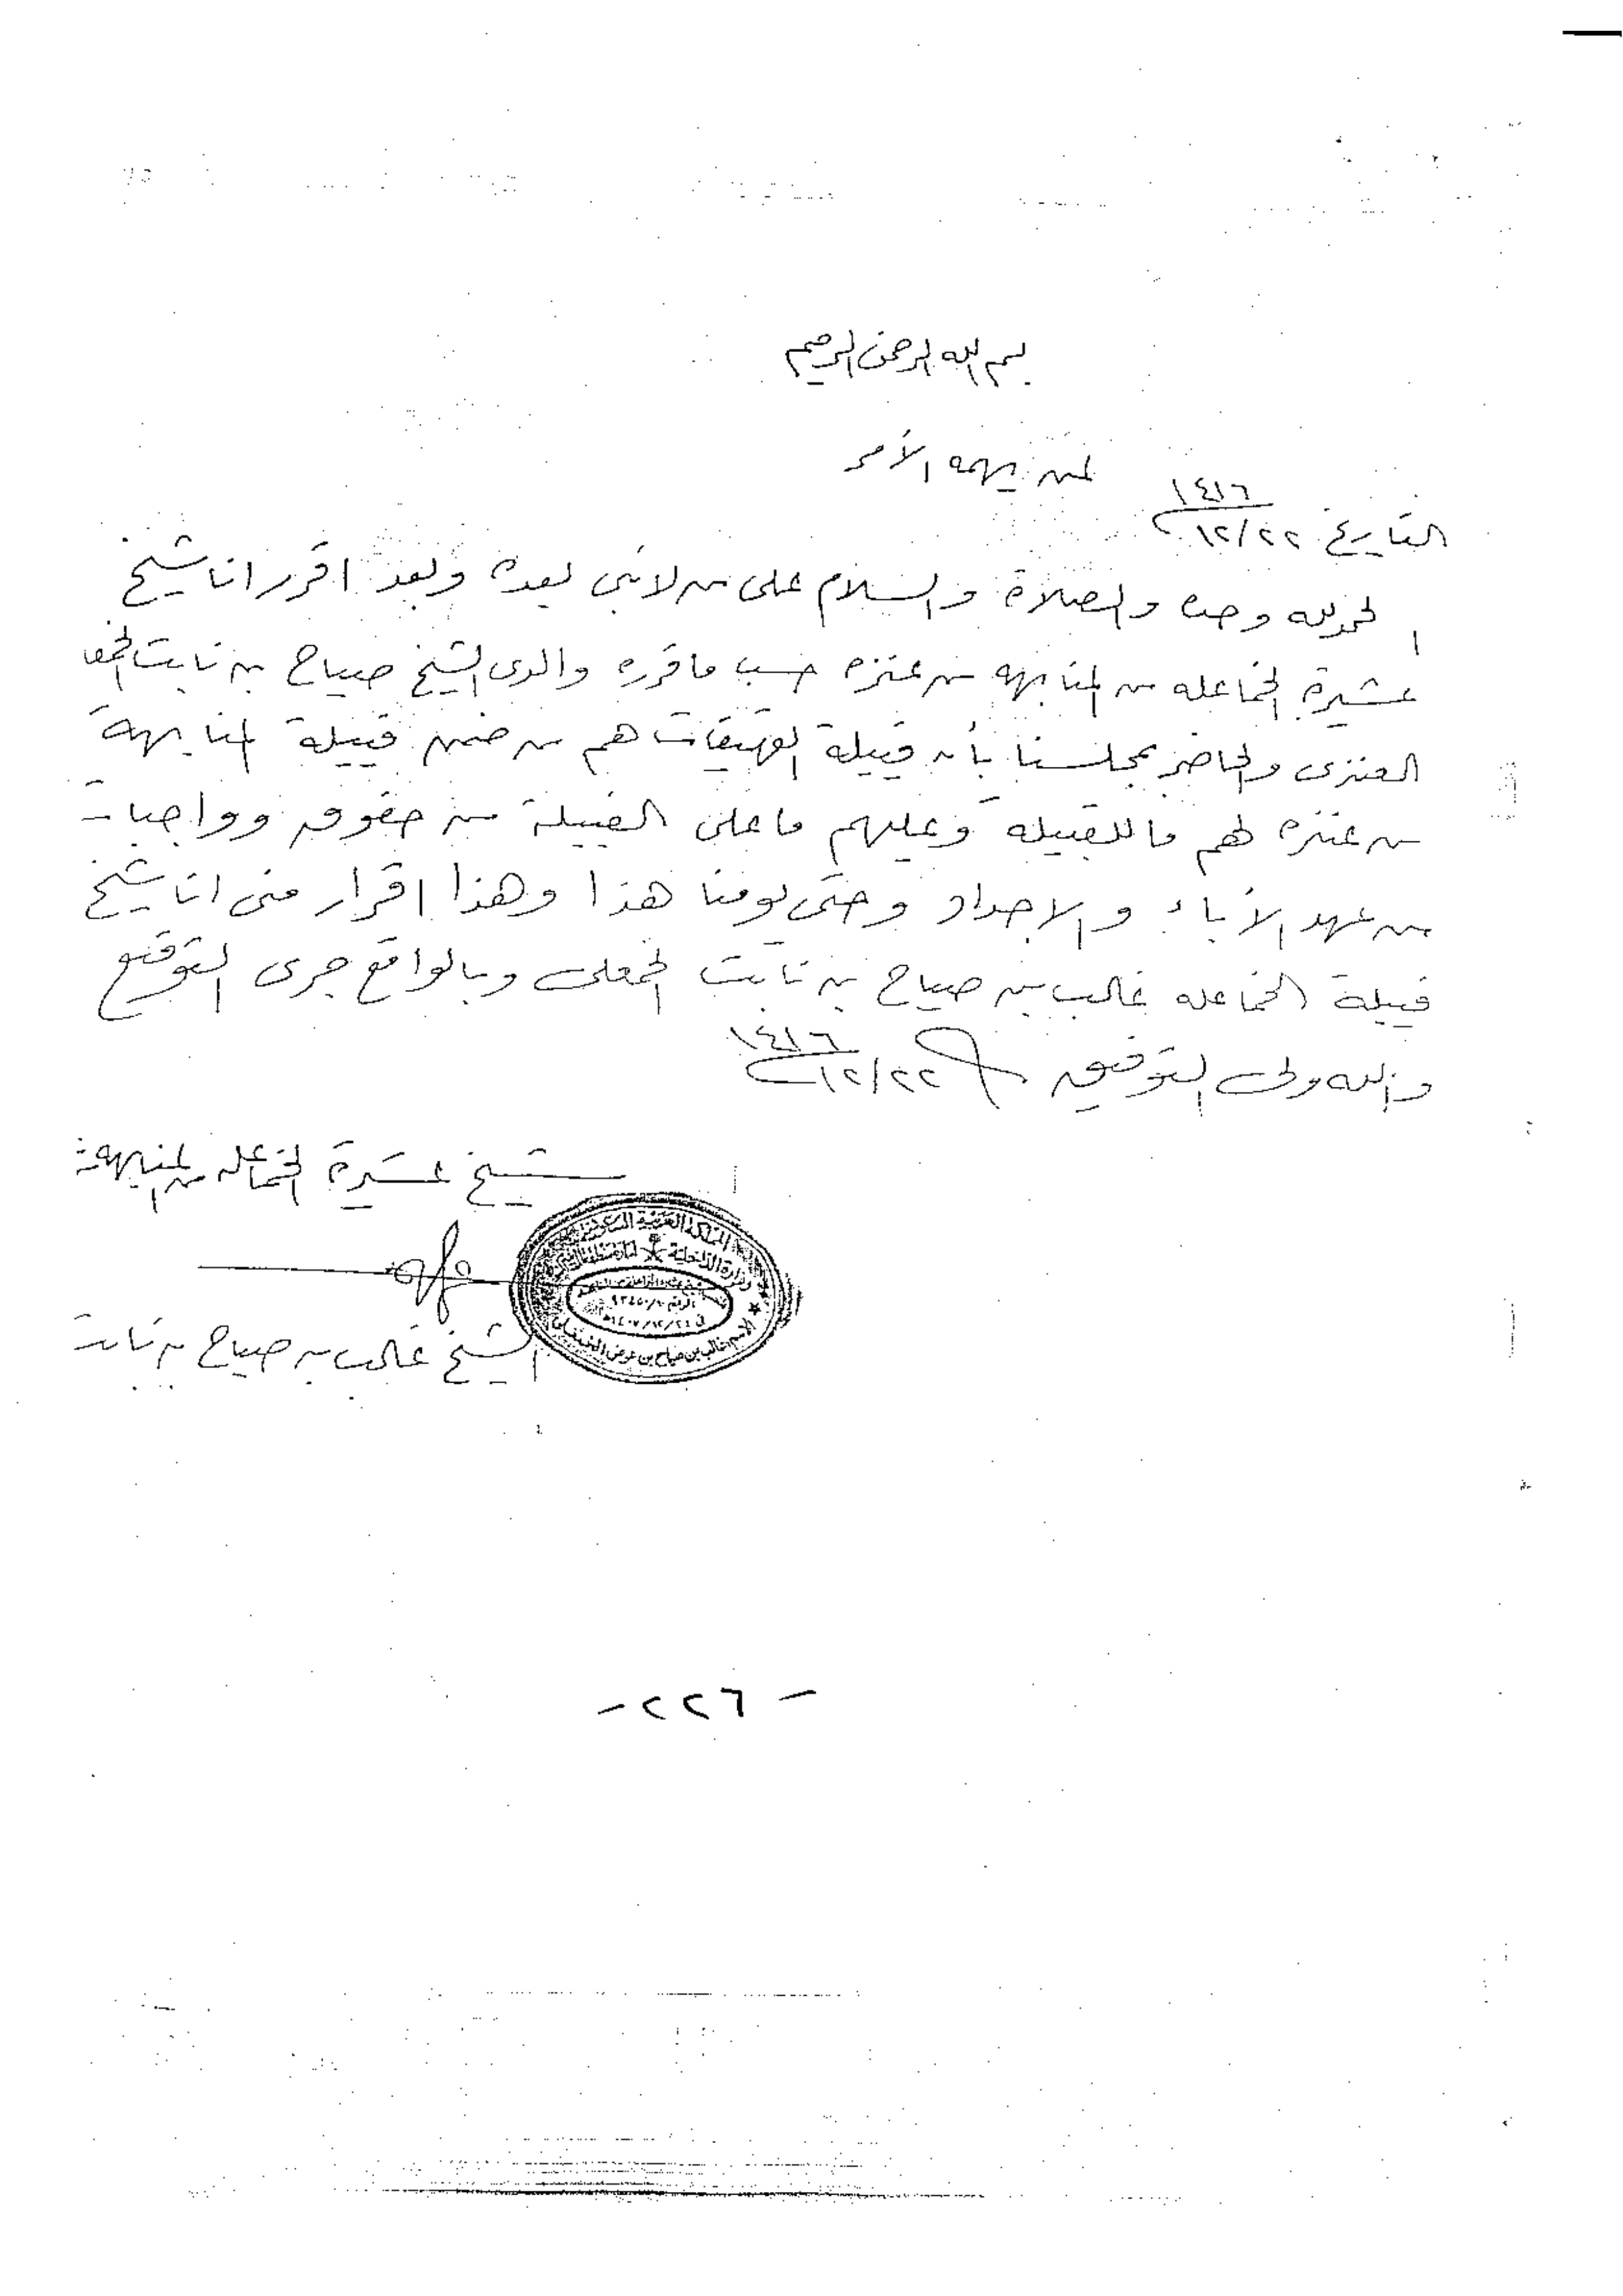 بسم الله الرحمن الرحيم
لمن يهمه الأمر
التاريخ ١٤١٦/١٢/٢٢
الحمد لله وحده والصلاة والسلام على من لا نبي بعده وبعد اقرر انا شيخ
عشيرة الخماعله من المنابهه من عنزه حسب ما قرره والدي الشيخ صياح بن ثابت
العنزي والحاضر بمجلسنا بأن قبيلة الفهيقات هم من ضمن قبيلة المنابهة
من عنزه لهم ما للقبيله وعليهم ما على القبيلة من حقوق وواجبات
من عهد الأباء والاجداد وحتى يومنا هذا وهذا اقرار منى انا شيخ
قبيلة الخماعله غالب بن صياح بن ثابت الخمعلي وبالواقع جرى التوقيع
والله ولي التوفيق ١٤١٦/١٢/٢٢
شيخ عشيرة الخماعله من المنابهة
المملكة العربية السعودية
وزارة الداخلية
الرقم
الاسم غالب بن صياح بن عوض
الشيخ غالب بن صياح بن ثابت
- ٢٢٦ -